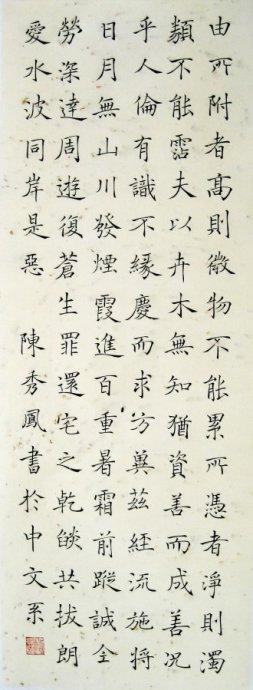 由所附者高則微物不能累所憑者淨則濁
類不能霑夫以卉木無知猶資善而成善況
乎人倫有識不緣慶而求方冀茲経流施將
日月無山川發煙霞進百重暑霜前蹤誠全
勞深達周遊復蒼生罪還宅之乾燄共拔朗
愛水波同岸是惡 陳秀鳳書於中文系